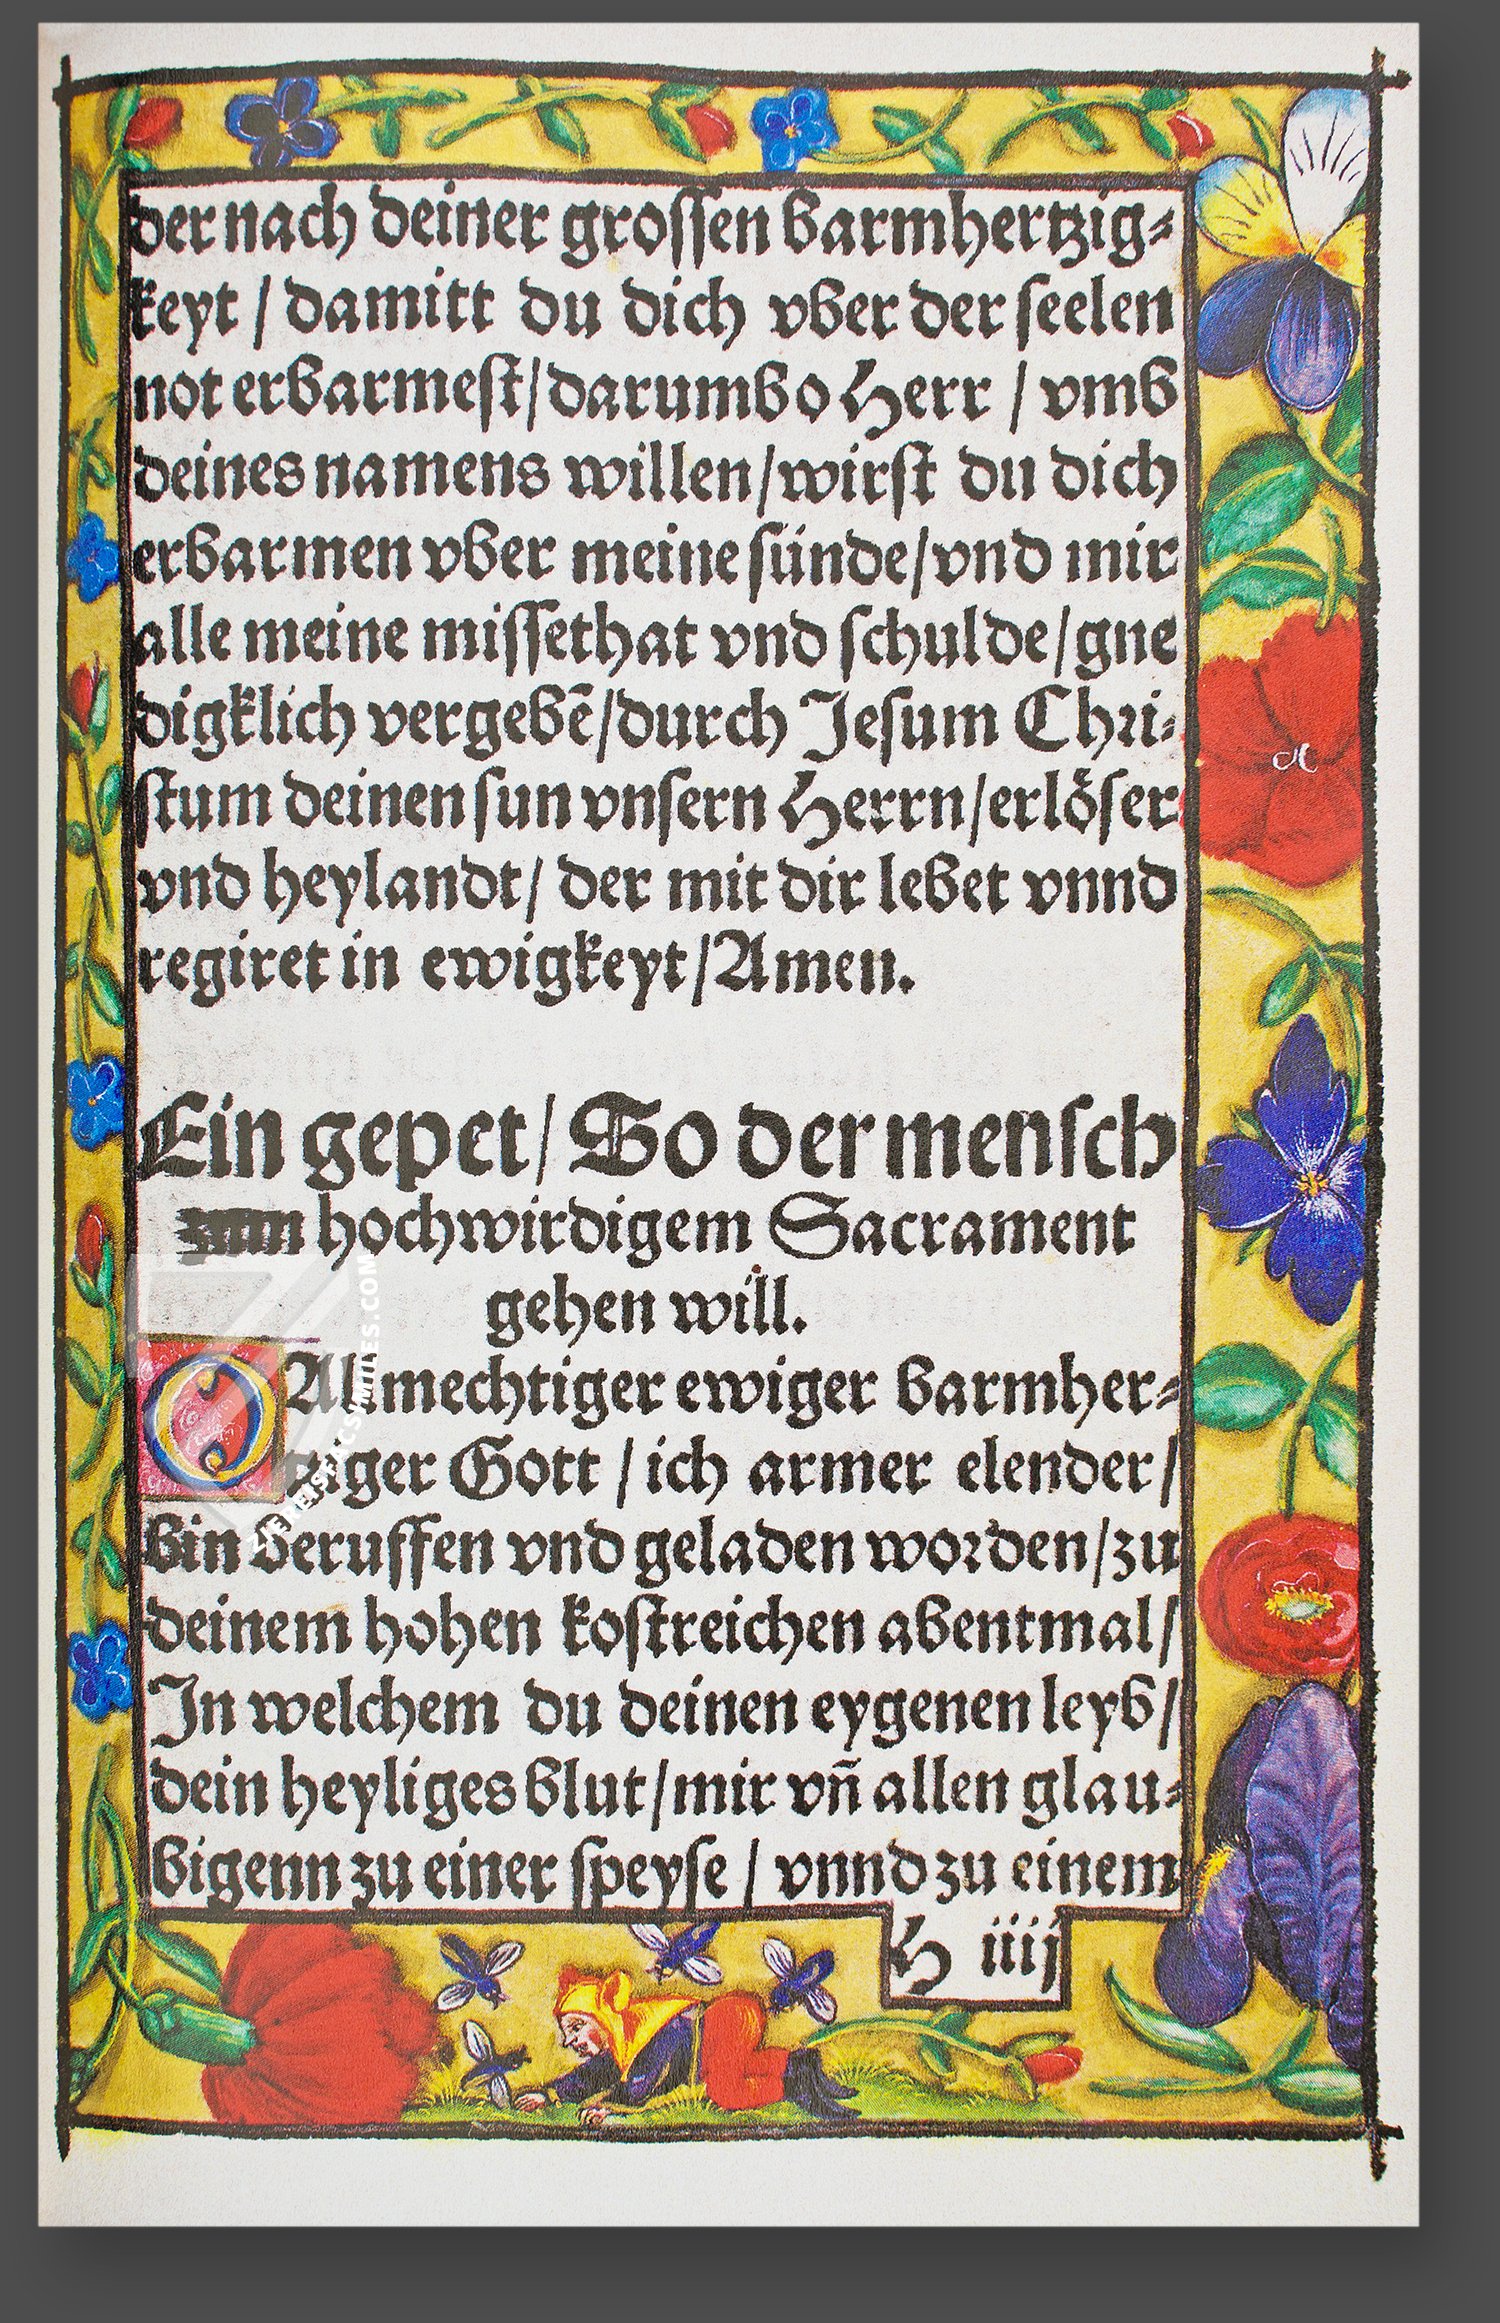 der nach deiner grossen barmhertzig⸗
keyt / damitt du dich vber der seelen
not erbarmest/darumb o Herr / vmb
deines namens willen/wirst du dich
erbarmen vber meine sünde/vnd mir
alle meine missethat vnd schulde/gne
digklich vergebē/durch Jesum Chri⸗
stum deinen sun vnsern Herrn/erlöser
vnd heylandt/ der mit dir lebet vnnd
regiret in ewigkeyt/Amen.
Ein gepet/ So der mensch
zum hochwirdigem Sacrament
gehen will.
O Allmechtiger ewiger barmher⸗
tziger Gott / ich armer elender/
bin beruffen vnd geladen worden/zu
deinem hohen kostreichen abentmal/
In welchem du deinen eygenen leyb/
dein heyliges blut/mir vn̄ allen glau⸗
bigenn zu einer speyse / vnnd zu einem
H iiij
ZIEREISFACSIMILES.COM